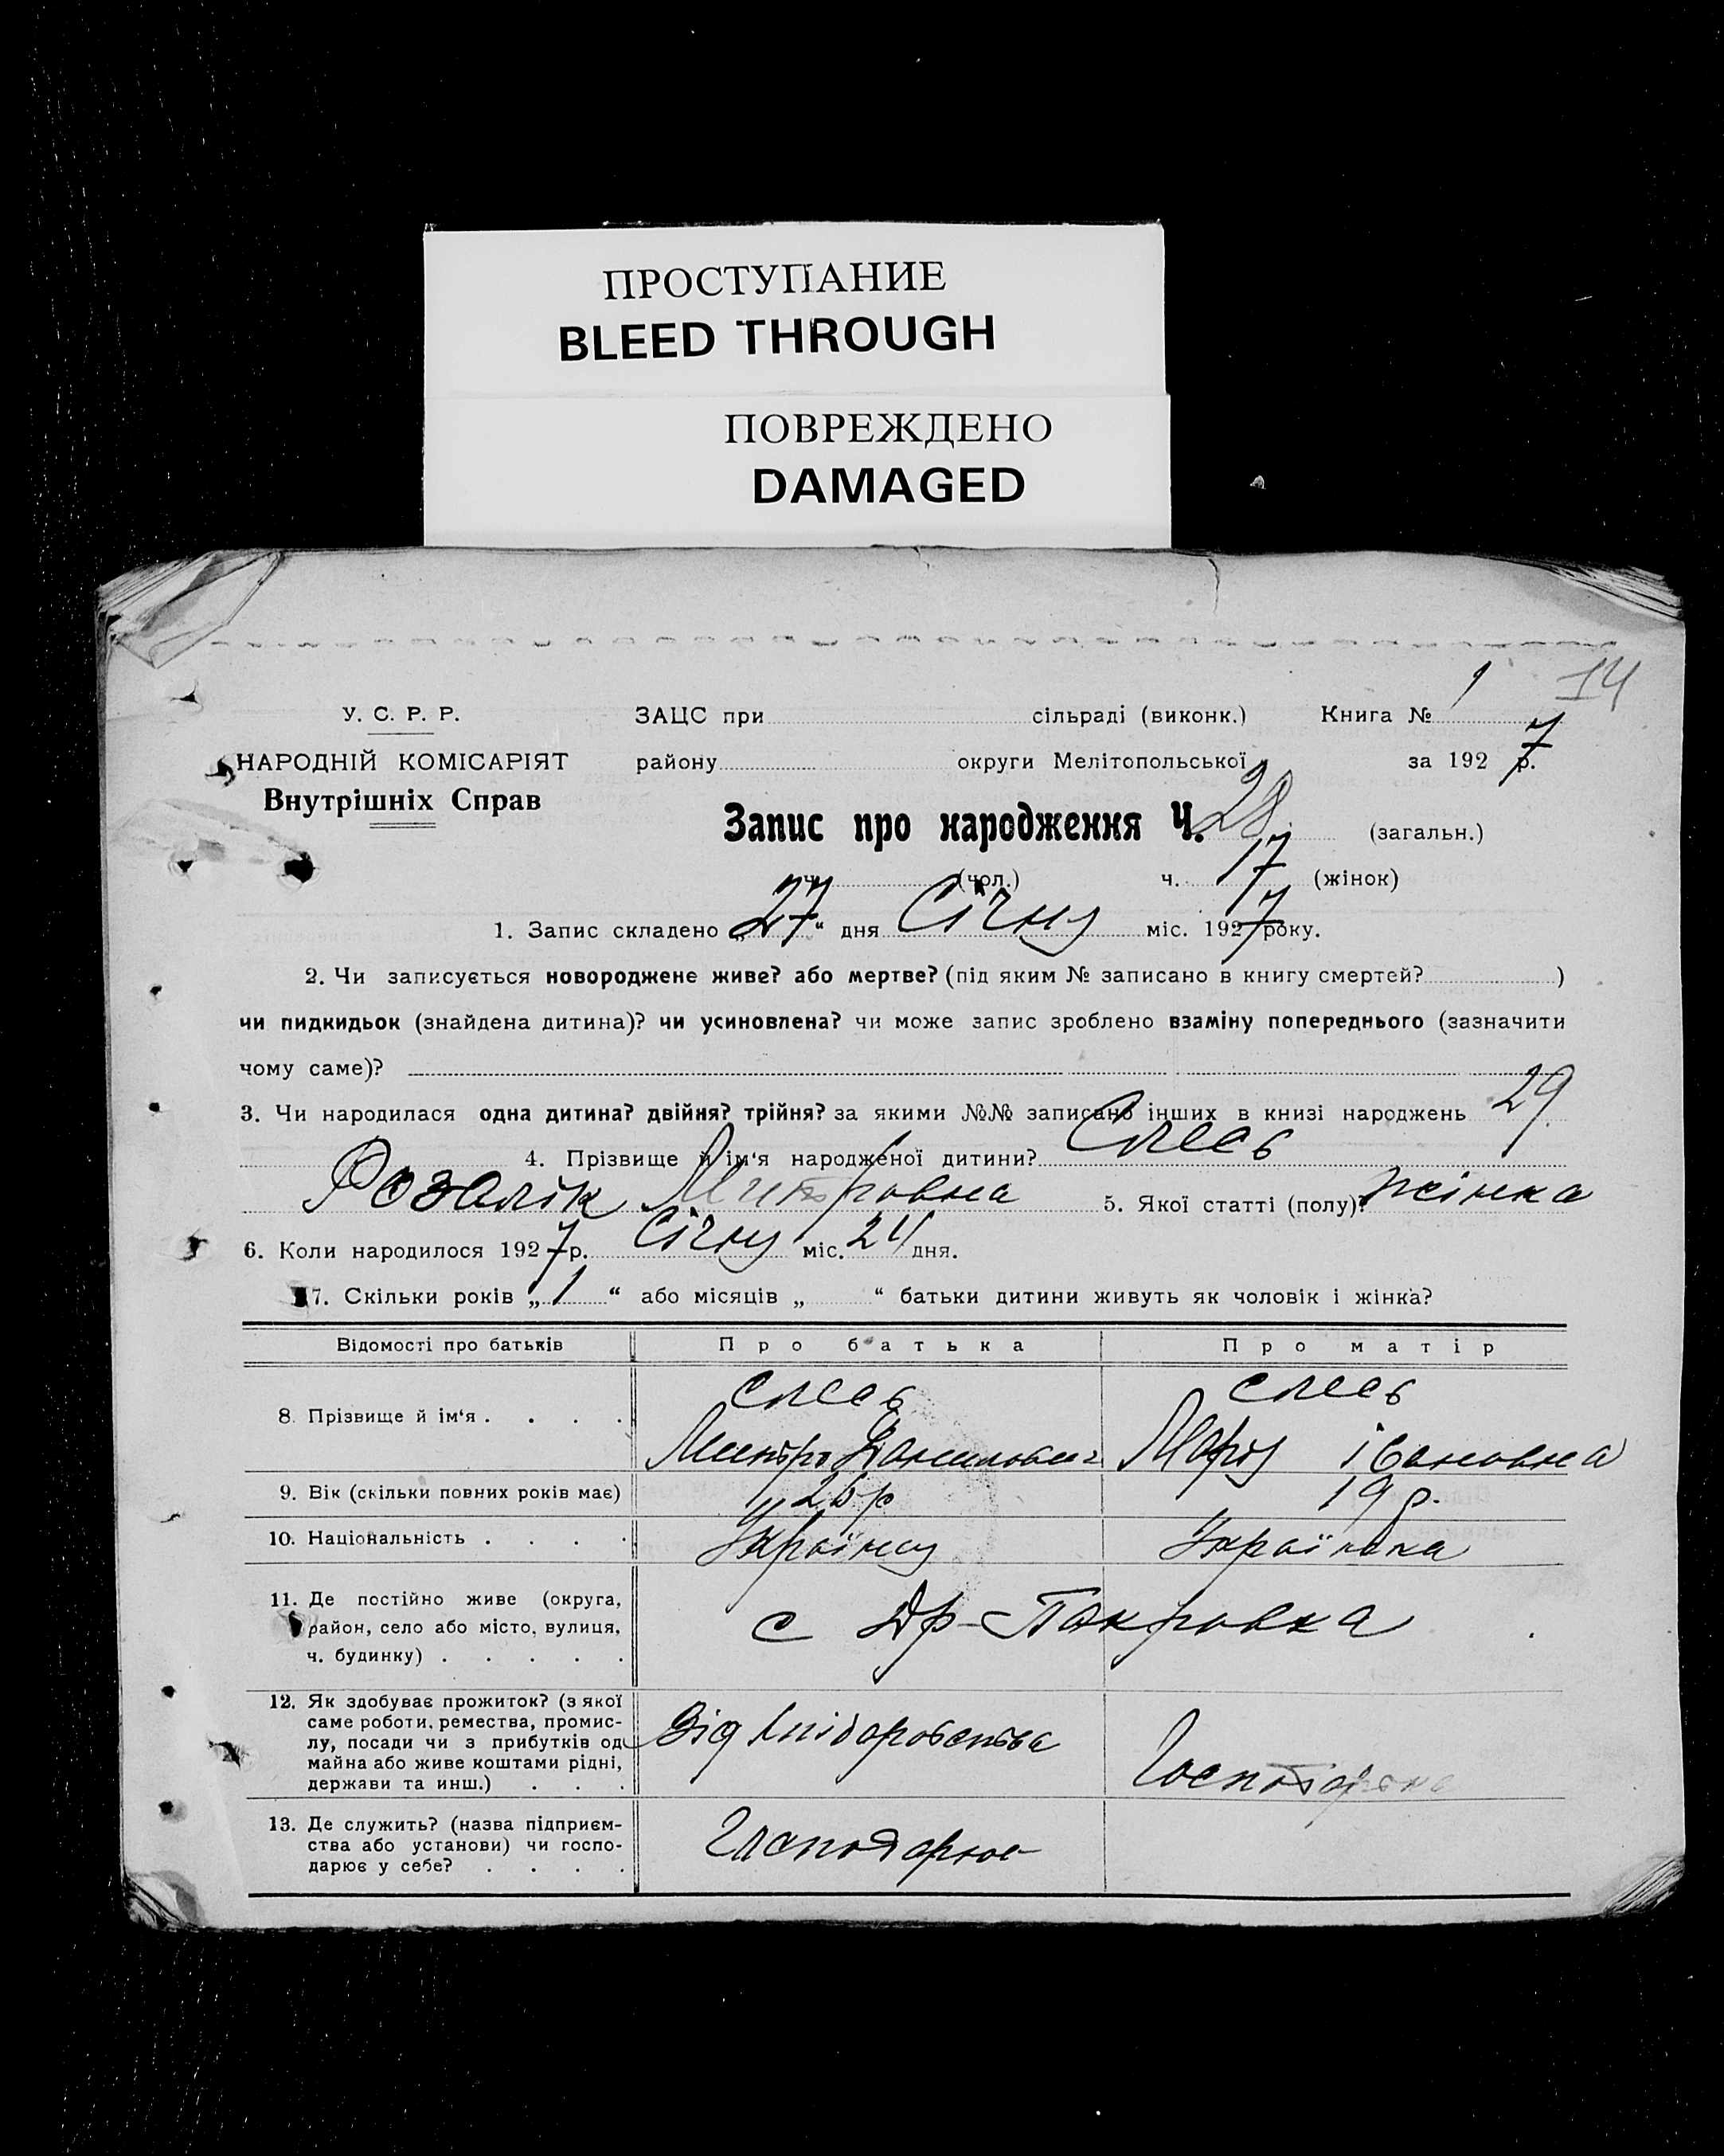 ПРОСТУПАНИЕ
BLEED THROUGH
ПОВРЕЖДЕНО
DAMAGED
14
У. С. Р. Р. ЗАЦС при сільраді (виконк.) Книга № 1
НАРОДНІЙ КОМІСАРІЯТ району округи Мелітопольської за 1927 р.
Внутрішніх Справ
Запис про народження Ч. 28 (загальн.)
ч. (чол.) ч. 17 (жінок)
1. Запис складено „27“ дня Січну міс. 1927 року.
2. Чи записується новороджене живе? або мертве? (під яким № записано в книгу смертей? )
чи пидкидьок (знайдена дитина)? чи усиновлена? чи може запис зроблено взаміну попереднього (зазначити
чому саме)?
3. Чи народилася одна дитина? двійня? трійня? за якими №№ записано інших в книзі народжень 29
4. Прізвище й ім‘я народженої дитини?
Митровна 5. Якої статті (полу)? жінка
6. Коли народилося 1927 р. Січну міс. 24 дня.
7. Скільки років „1“ або місяців „ “ батьки дитини живуть як чоловік і жінка?
Відомості про батьків Про батька Про матір
8. Прізвище й ім‘я . . . .
Митро Івановна
9. Вік (скільки повних років має) 26 р 19 р.
10. Національність . . . . Українец Українка
11. Де постійно живе (округа,
район, село або місто, вулиця,
ч. будинку) . . . . .
с Др-Покровка
12. Як здобуває прожиток? (з якої
саме роботи, ремества, промис-
лу, посади чи з прибутків од
майна або живе коштами рідні,
держави та инш.) . . .
Від хліборобства
13. Де служить? (назва підприєм-
ства або установи) чи госпо-
дарює у себе? . . . .
Господарює